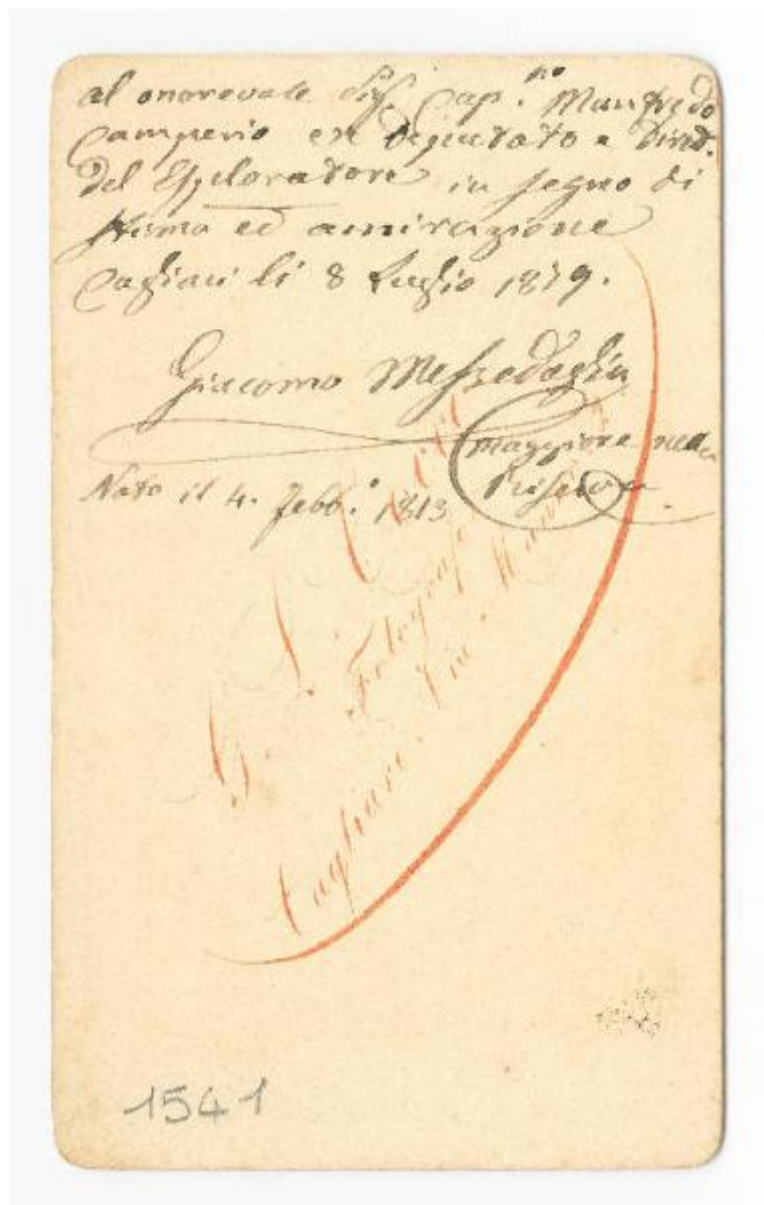 al onorevole Sig. Cap.no Manfredo
Camperio ex deputato e Diret.
del Esploratore in segno di
stima ed amirazione
Cagliari li 8 Luglio 1879.
Giacomo Messedaglia
maggiore nella
Riserva
Nato il 4. Febb.o 1813
G. Fotografo
Cagliari. Via
1541